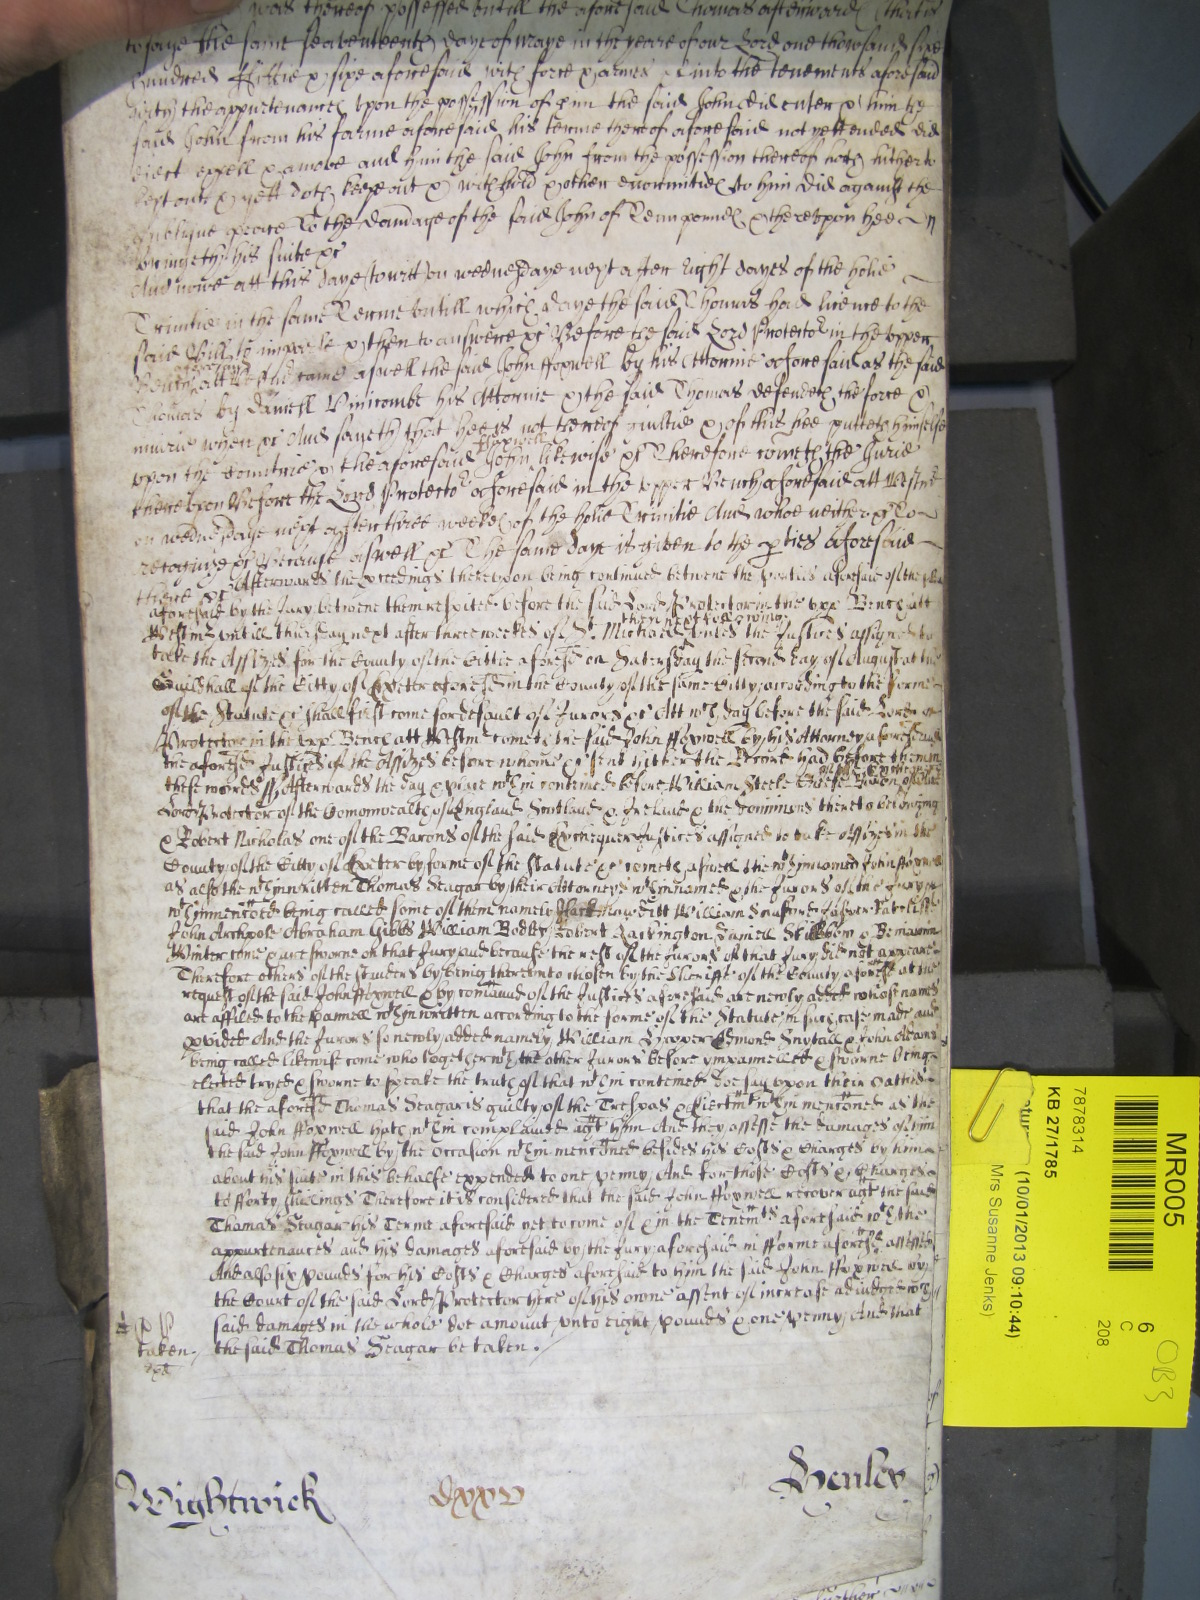 was thereof possessed untill the aforesaid Thomas afterwards (that is
to saye the same seaventeenth daye of Maye in the yeare of our Lord one thousand sixe
hundred fiftie & sixe aforesaid with force & armes &c into the tenements aforesaid
with the appurtenances upon the possession of him the said John did enter & him the
said John from his farme aforesaid his terme thereof aforesaid not yett ended did
eject expell & amove and him the said John from the possession thereof hath hitherto
kept out & yett doth keepe out & withhold & other enormities to him did against the
publique peace To the damage of the said John of Tenn pounds & thereupon hee
bringeth his suite &c
And nowe att this daye (to witt) on wednesdaye next after Eight dayes of the holie
Trinitie in the same Terme untill which daye the said Thomas had licence to the
said Bill to imparle & then to answere &c Before the said Lord Protector in the upper
Bench att Westm came aswell the said John Foxwell by his Attornie aforesaid as the said
Thomas by Daniell Vinicombe his Attornie & the said Thomas defendeth the force &
iniurie when &c And sayeth that hee is not thereof guiltie & of this hee putteth himselfe
upon the Countrie & the aforesaid John Foxwell likewise &c Therefore cometh the Jurie
thereupon Before the Lord Protector aforesaid in the upper Bench aforesaid att Westmr
on wednesdaye next after three weekes of the holie Trinitie And whoe neither &c To
recognize &c Because aswell &c The same daye is given to the pties aforesaid
there &c Afterwards the pceedings thereupon being continued betwene the parties aforesaid of the plea
aforesaid by the Jury betwene them respited before the said Lord Protector in the upp Bench att
Westmr untill thursday next after three weekes of St. Michael then next following unles the Justices assigned to
take the Assizes for the County of the Cittie aforesd on Satersday the second day of August at the
Guildhall of the Citty of Exeter aforesd in the County of the same Citty according to the forme
of the Statute &c shall first come for default of Jurors &c Att wch day before the said Lord
Protector in the upp Bench att Westmr cometh the said John Foxwell by his Attorney aforesaid
the aforesd Justices of the Assizes before whome &c sent hither their Record had before them in
these words ss Afterwards the day & place wthin conteined before William Steele Cheife Baron of
Lord Protector of the Comonwealth of England Scotland & Ireland & the dominions thereto belonging
& Robert Nicholas one of the Barons of the said Exchequer Justices assigned to take Assizes in the
County of the Citty of Exeter by forme of the Statute &c cometh aswell the wthinnamed John Foxwell
as also the wthinwritten Thomas Seagar by their Attorneys wthinnamed & the Jurors of the Jury
wthinmenconed being called some of them namely William Sanford Jasper
John Archpole Abraham Gibbs William Bodley Robert Daniell & Beniamin
Winter come & are sworne on that Jury and because the rest of the Jurors of that Jury did not appeare
Therefore others of the standers by being thereunto chosen by the Sheriffe of the County aforesd at the
request of the said John Foxwell & by comaund of the Justices aforesaid are newly added whose names
are affiled to the Pannell wthinwritten according to the forme of the Statute in such case made and
pvided And the Jurors so newly added namely William Edmond & John Adams
being called likewise come who together wth the other Jurors before ympannelled & sworne being
elected tryed & sworne to speake the truth of that wthin conteined doe say upon their oathes
that the aforesd Thomas Seagar is guilty of the Trespas & Eiectmt wthin menconed as the
said John Foxwell hath wthin complained agt him And they assesse the damages of him
the said John Foxwell by the occasion wthin menconed besides his Costs & Charges by him
about his suite in this behalfe expended to one penny And for those Costs & Charges
to fforty shillings Therefore it is considered that the said John Foxwell recover agt the said
Thomas Seagar his Terme aforesaid yet to come of & in the Tenemts aforesaid wth the
appurtenances and his damages aforesaid by the Jury aforesaid in fforme aforesd assessed
And also six pounds for his Costs & Charges aforesaid to him the said John Foxwell by
the Court of the said Lord Protector here of his owne assent of increase adiudged wch
said damages in the whole doe amount unto eight pounds & one penny And that
taken. the said Thomas Seagar be taken.
Wightwick dxxv Henley
MR005
6
C
208
OB3
7878314
KB 27/1785
(10/01/2013 09:10:44)
Mrs Susanne Jenks)